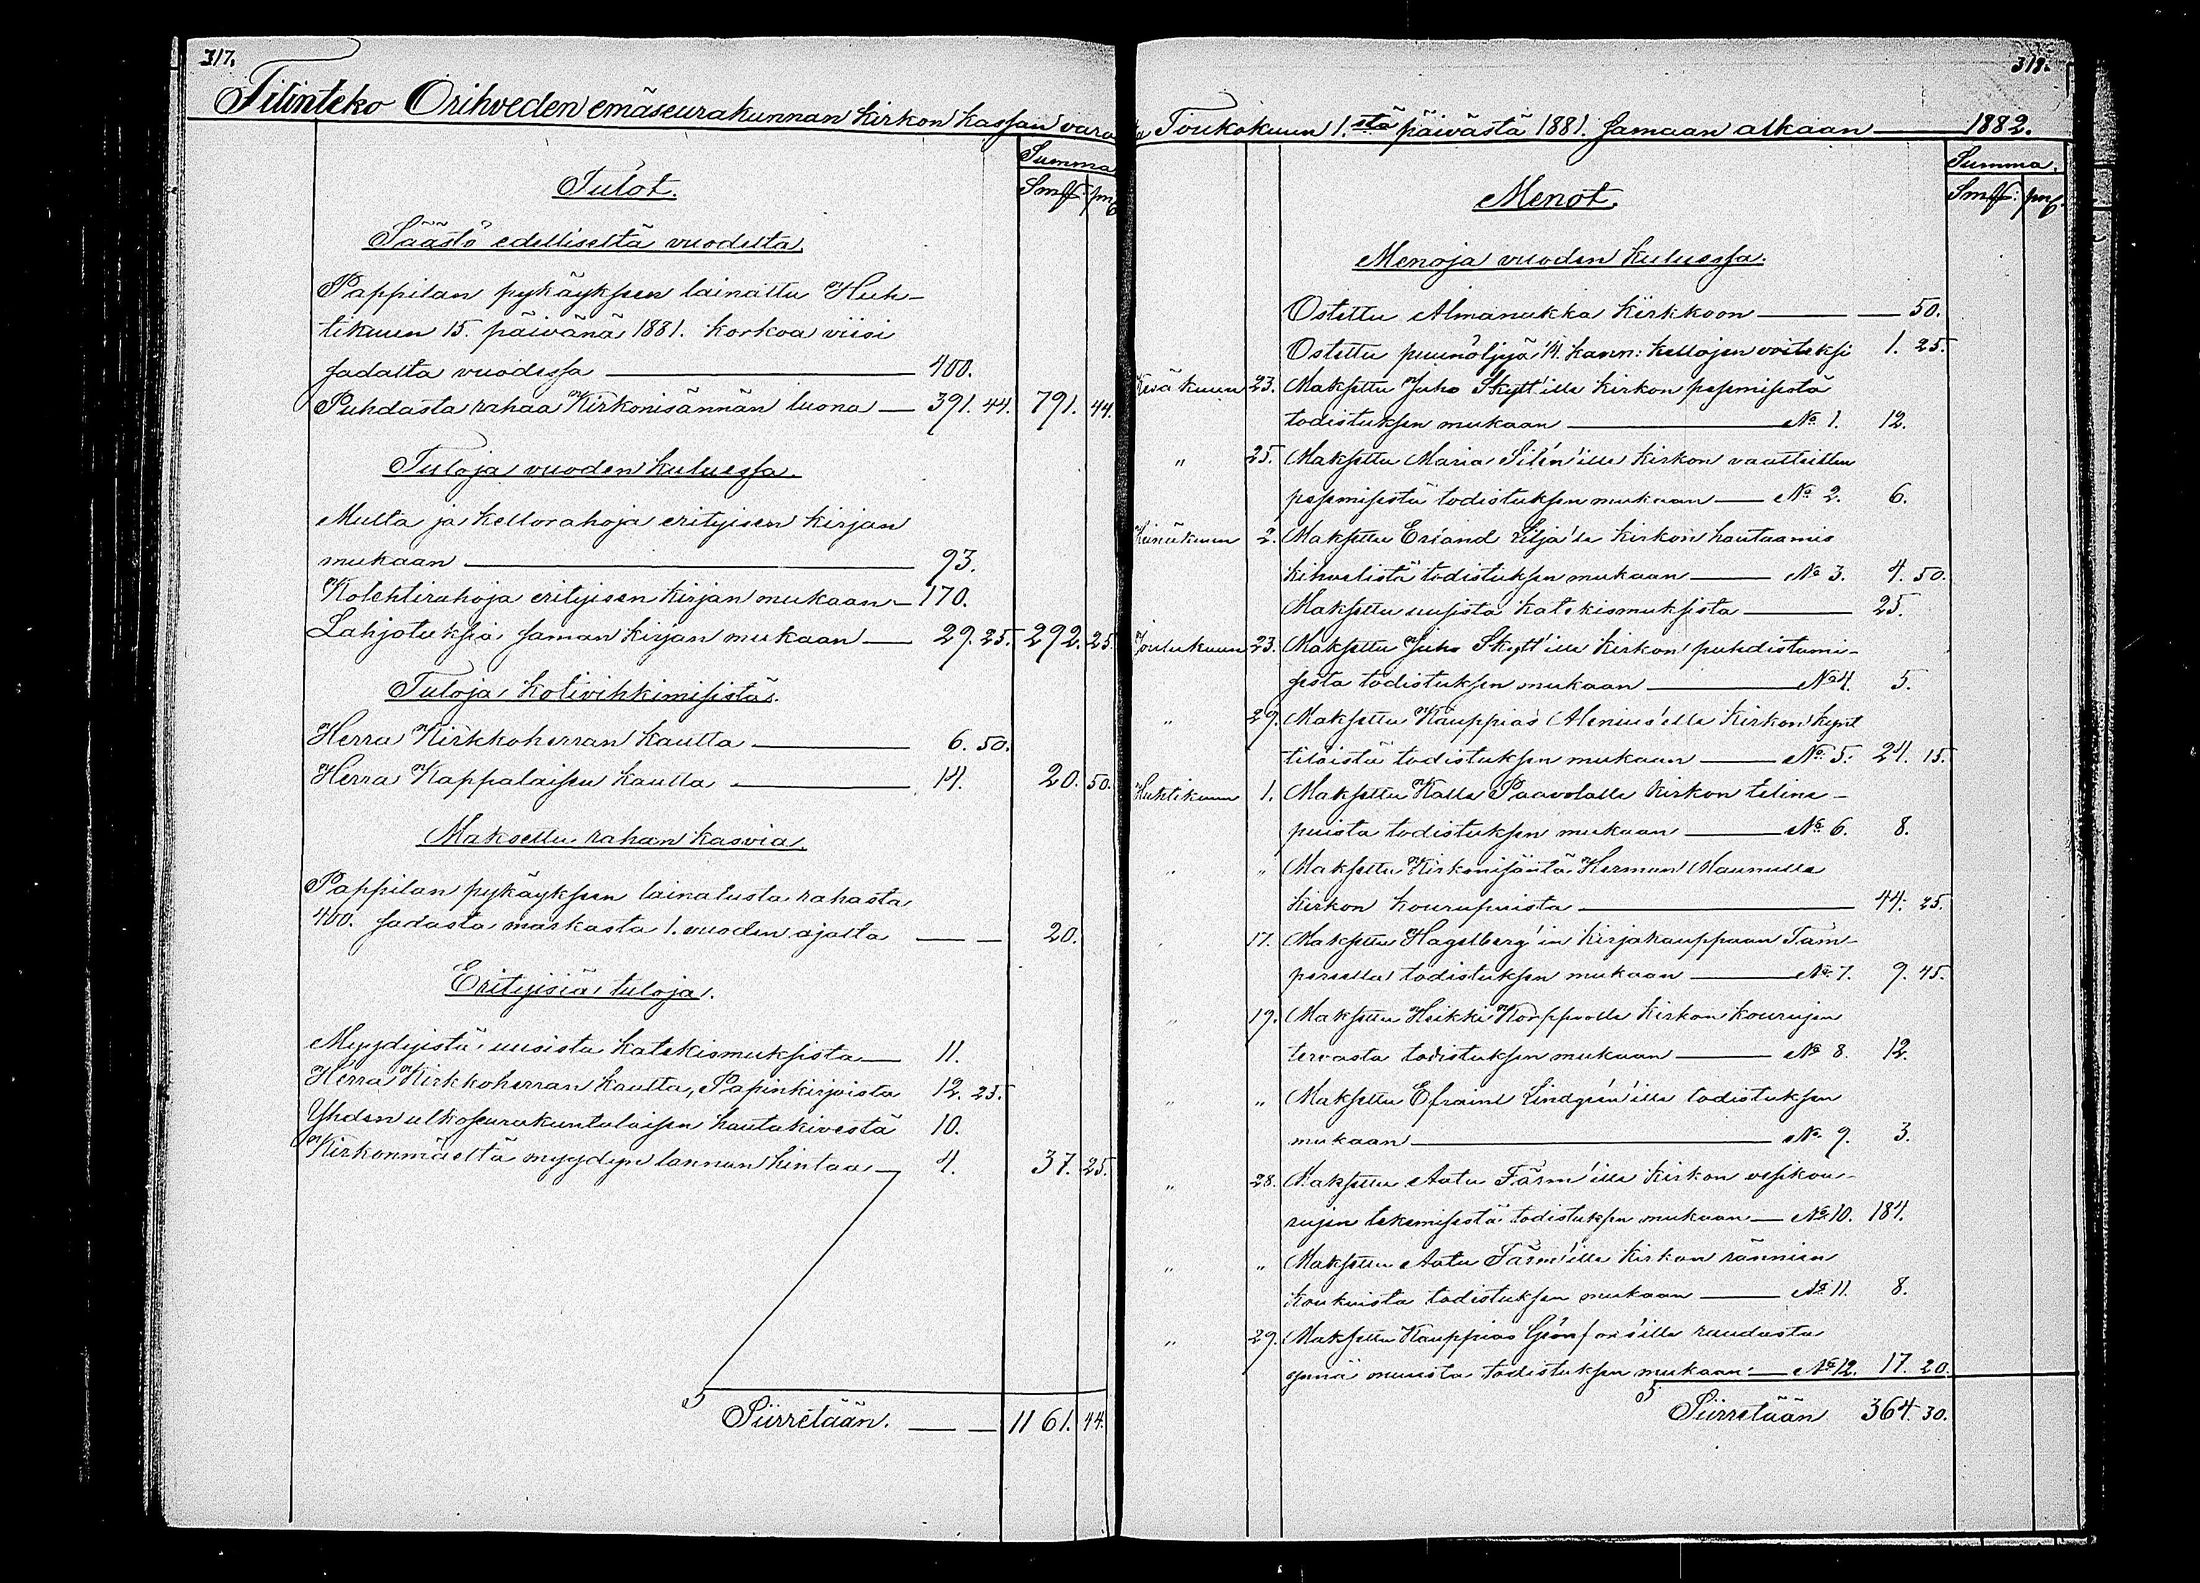 317.
Tilinteko Orihveden emäseurakunnan kirkon kassan vara
Summa
Tulot.
Smf: pnf
Säästö edelliseltä vuodelta.
Pappilan pykäyksen lainattu Huh-
tikuun 15. päivänä 1881. korkoa viisi
sadalta vuodessa — 400.
Puhdasta rahaa Kirkonisännän luona — 391. 44. 791. 44.
Tuloja vuoden kuluessa.
Multa ja kellorahoja erityisen kirjan
mukaan — 93.
Kolehtirahoja erityisen kirjan mukaan — 170.
Lahjotuksia saman kirjan mukaan — 29. 25. 292. 25.
Tuloja kotivihkimisistä.
Herra Kirkkoherran kautta — 6. 50.
Herra Kappalaisen kautta — 14. 20. 50.
Maksettu rahan kasvia.
Pappilan pykäyksen lainatusta rahasta
400. sadasta markasta 1. vuoden ajalta — — 20.
Erityisiä tuloja.
Myydyistä uusista katekismuksista — 11.
Herra Kirkkoherran kautta, Papinkirjoista 12. 25.
Yhden ulkoseurakuntalaisen hautakivestä 10.
Kirkonmäeltä myydyn lannan hintaa — 4. 37. 25.
Siirretään. — — 1161. 44.
318.
Toukokuun 1.stä päivästä 1881. samaan aikaan — 1882.
Summa.
Smf: pnf.
Menot.
Menoja vuoden kuluessa.
Ostettu Almanakka kirkkoon — — 50.
Ostettu puunöljyä 1/4. kann: kellojen voiteksi 1. 25.
Kesäkuun 23. Maksettu Juho Skytt'ille kirkon pesemisestä
todistuksen mukaan — No 1. 12.
" 25. Maksettu Maria Silén'ille kirkon vaatteitten
pesemisestä todistuksen mukaan — No 2. 6.
Heinäkuun 2. Maksettu Erland Lilja'le kirkon hautaamis
kihvelistä todistuksen mukaan — No 3. 4. 50.
Maksettu uusista katekismuksista — 25.
Joulukuun 23. Maksettu Juho Skytt'ille kirkon puhdistami-
sesta todistuksen mukaan — No 4. 5.
" 29. Maksettu Kauppias Alenius'elle kirkon kynt
tilöistä todistuksen mukaan — No 5. 24. 15.
Huhtikuun 1. Maksettu Kalle Paavolalle kirkon teline-
puista todistuksen mukaan — No 6. 8.
" " Maksettu Kirkonisäntä Herman Maunulle
kirkon kourupuista — 44. 25.
17. Maksettu Hagelberg'in kirjakauppaan Tam-
pereella todistuksen mukaan — No 7. 9. 45.
" 19. Maksettu Heikki Korppoolle kirkon kourujen
tervasta todistuksen mukaan — No 8. 12.
" " Maksettu Efraim Lindgrén'ille todistuksen
mukaan — No 9. 3.
" 28. Maksettu Aatu Färm'ille kirkon vesikou-
rujen tekemisestä todistuksen mukaan — No 10. 184.
" " Maksettu Aatu Färm'ille kirkon rännien
koukuista todistuksen mukaan — No 11. 8.
" 29. Maksettu Kauppias Grönfors'ille raudasta
ynnä muusta todistuksen mukaan — No 12. 17. 20.
Siirretään 364. 30.